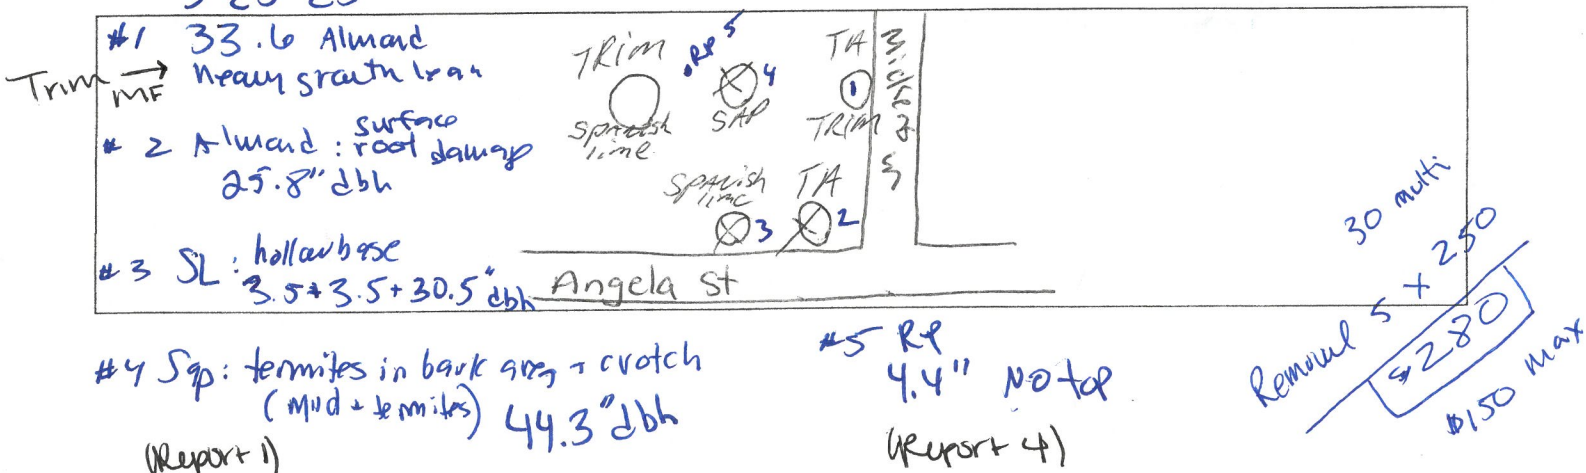 #1 33.6 Almond
Trim → heavy growth lean
MF
# 2 Almond : surface root damage
25.8" dbh
# 3 SL : hollow base
3.5 + 3.5 + 30.5" dbh
TRim
Spanish lime
.RP 5
4
SAP
TA
1
TRIM
SPANish lime
3
TA
2
Angela St
#4 Sap: termites in bark area + crotch
(mud + termites) 44.3" dbh
(Report 1)
#5 RP
4.4" NO top
(Report 4)
30 multi
Removal 5 x 250
$280
$150 max